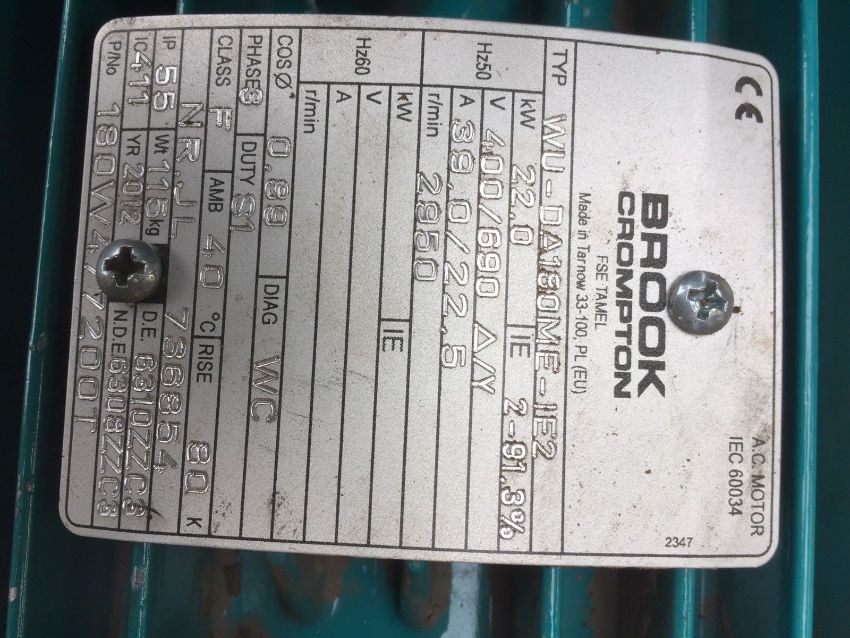 CE
BROOK
CROMPTON
A.C. MOTOR
IEC 60034
FSE TAMEL
Made in Tarnow 33-100, PL (EU)
2347
TYP WU-DA180ME-IE2
Hz50 kW 22,0 IE 2-91,3%
V 400/690 Δ/Y
A 39,0/22,5
r/min 2950
Hz60 kW IE
V
A
r/min
COSØ 0,89 DIAG WC
PHASE 3 DUTY S1
CLASS F AMB 40 °C RISE 80 K
NR. JL 736854
IP 55 Wt 115kg D.E 6310ZZC3
IC 411 YR 2012 N.D.E 6308ZZC3
P/No 180W4/7200T